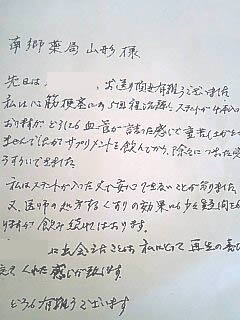 南郷薬局 山形 様
先日は、 お送り頂き有難うございました
私は心筋梗塞にあい 回程治療しステントが4本入って
おり料が どうしても血管が詰った感じで重苦しさが
出んでいたが サプリメントを飲んでから、徐々につまった感
うすらいできました
私はステントが入った丈で安心できないことが分りました。
又、医師の処方するくすりの効果にも少々疑問を
り料が飲み続けております。
に出会えたことは、私にとって再生の喜び
えてくれた感じが致します。
どうも有難うございます